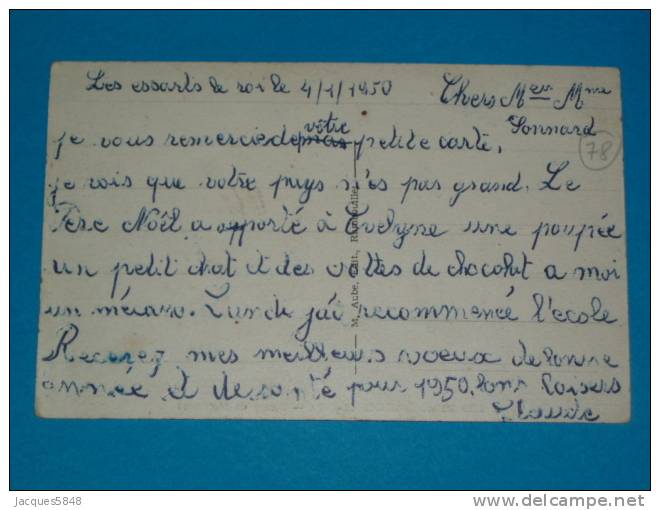 Les essarts le roi le 4/1/1950
Chers Mer Mme
Sonnard
78
votre
je vous remercie de petite carte,
je vois que votre pays n'es pas grand. Le
Père Noël a apporté à Evelyne une poupée
un petit chat et des bottes de chocolat a moi
un mécano. Lundi j'ai recommencé l'école
Recevez mes meilleurs voeux de bonne
année et de santé pour 1950. bons baisers
Claude
M. Aube, Edit., Rambouillet
Jacques5848
www.delcampe.net